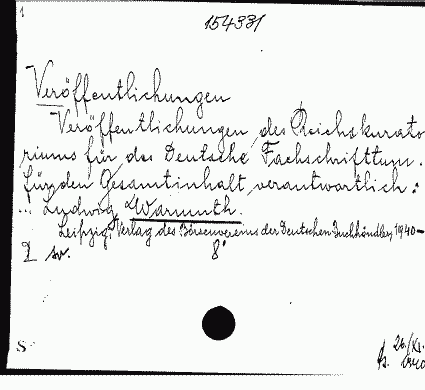 1
154331
Veröffentlichungen
Veröffentlichungen des Reichskurato
riums für das Deutsche Fachschrifttum.
Für den Gesamtinhalt verantwortlich:
... Ludwig Warmuth.
Leipzig, Verlag des Börsenvereins der Deutschen Buchhändler, 1940-
8°
S